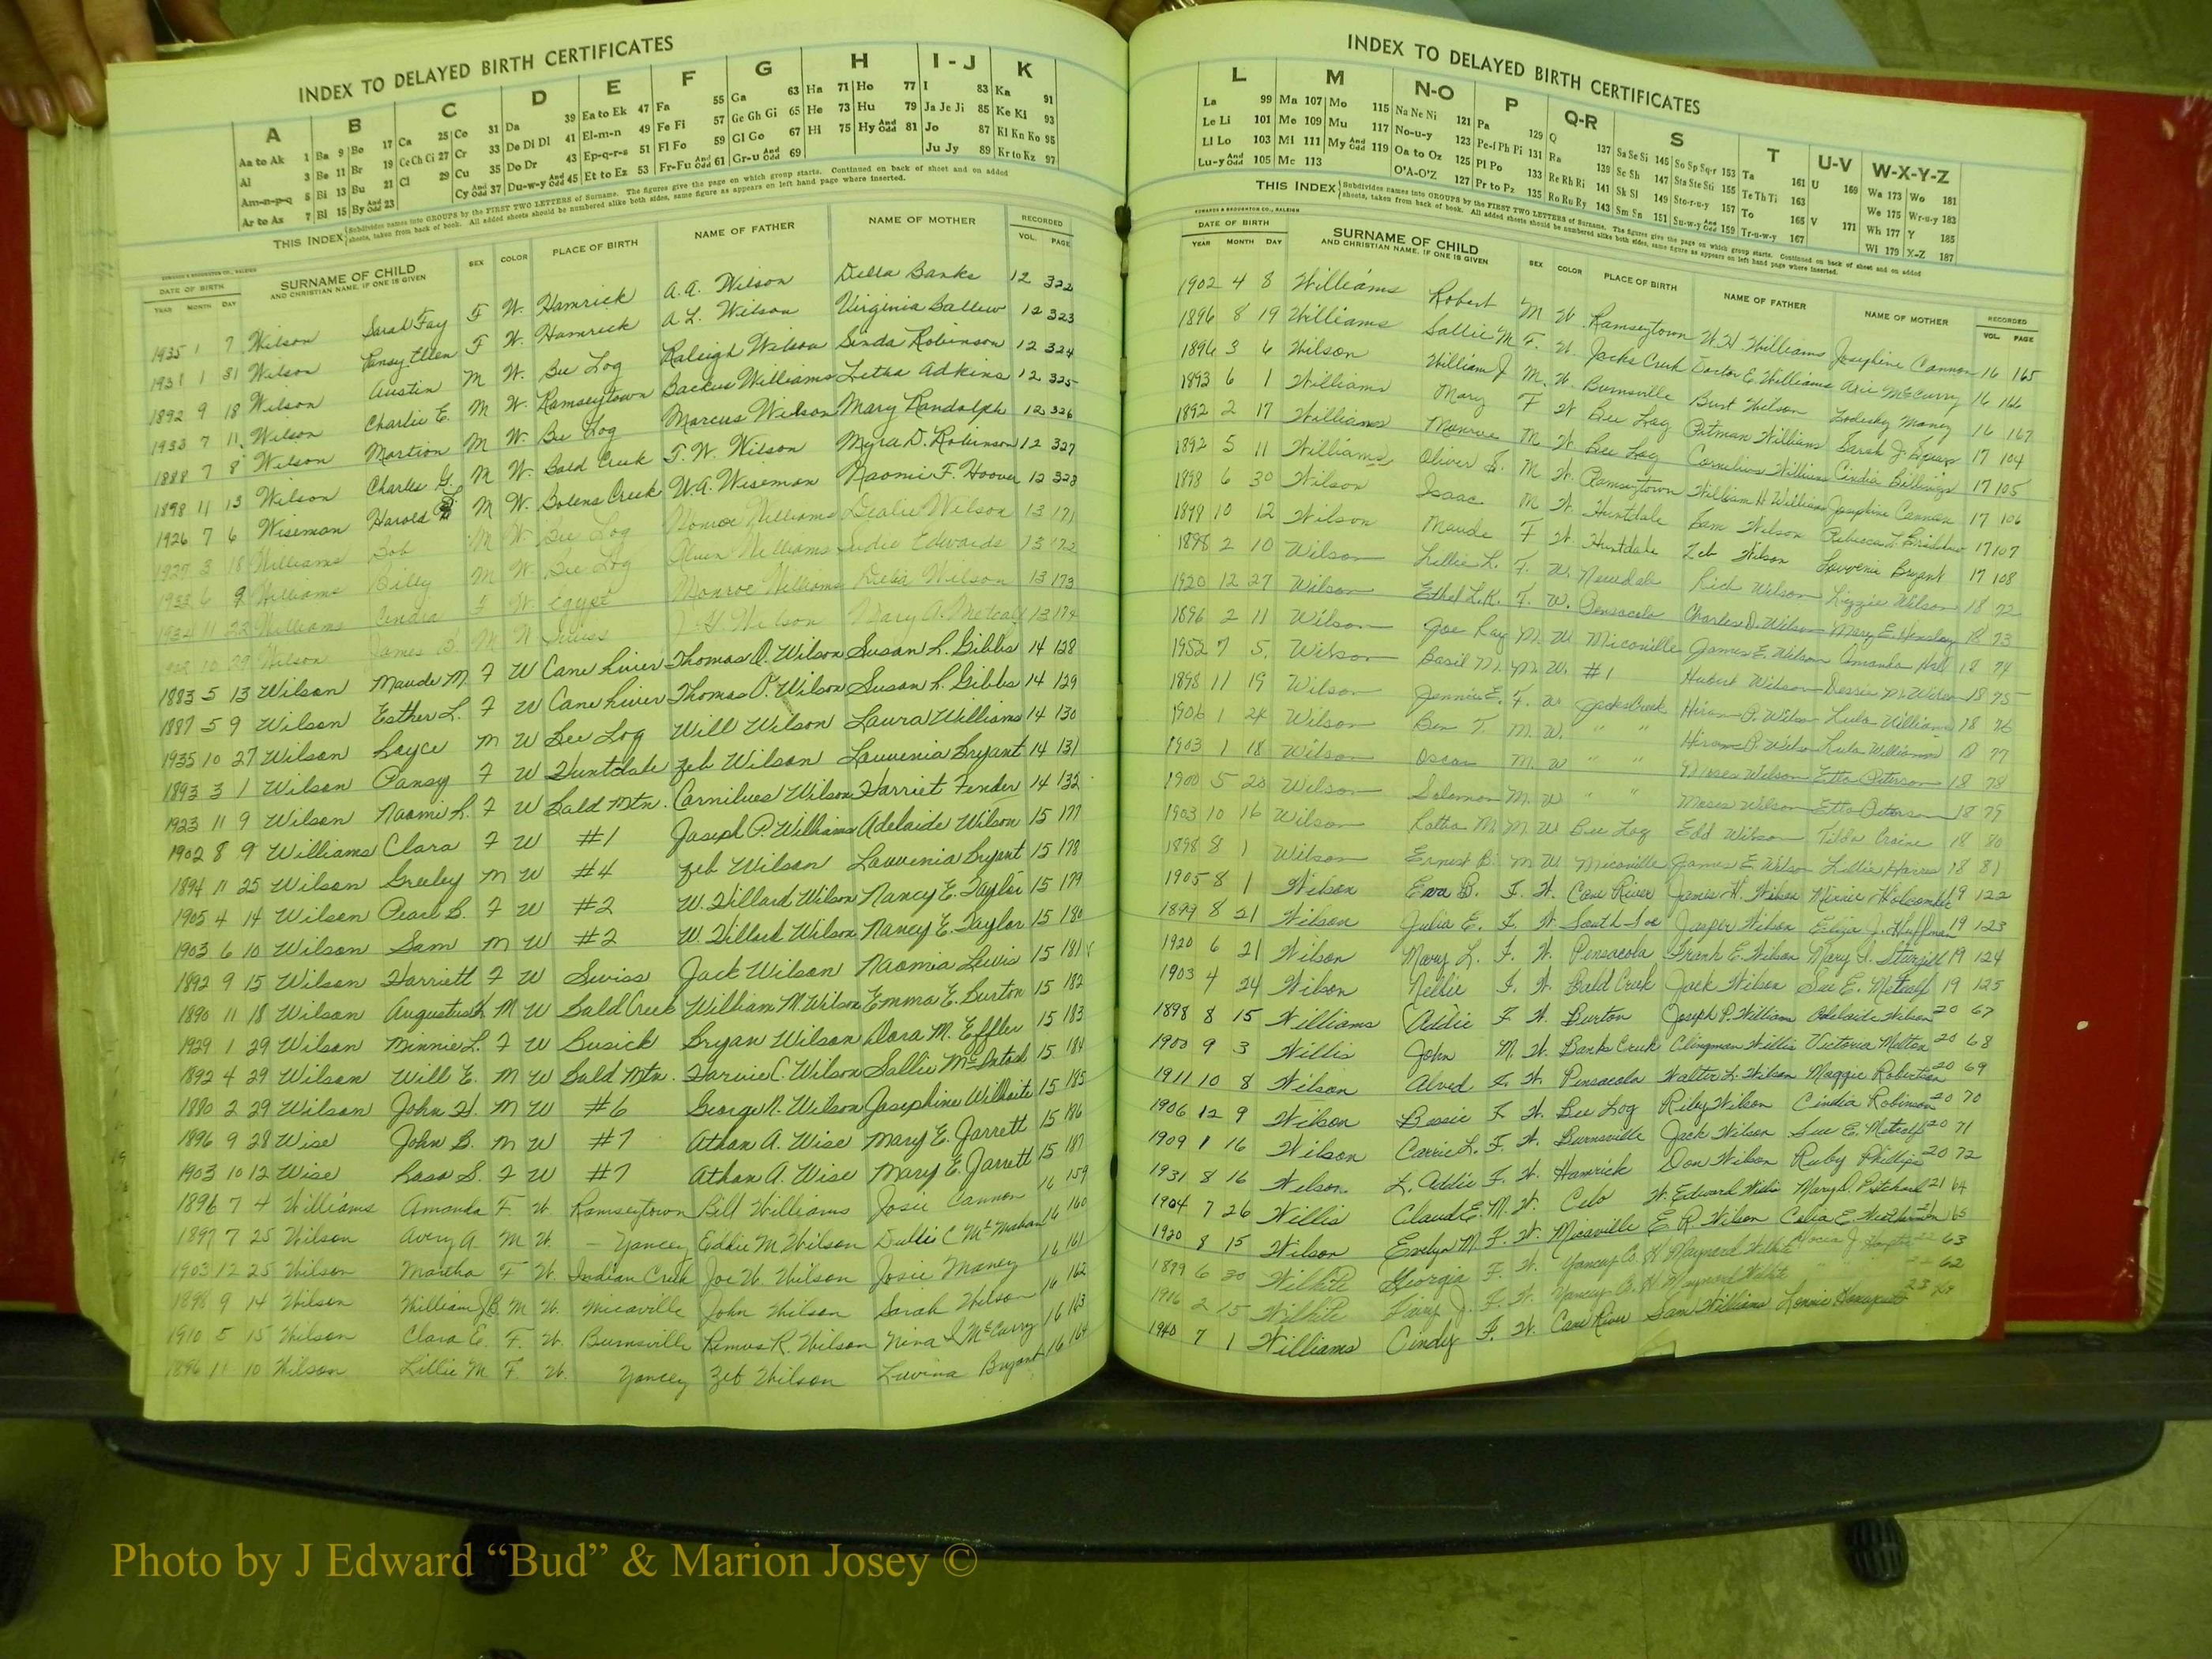 INDEX TO DELAYED BIRTH CERTIFICATES
A B C D E F G H I - J K
Aa to Ak 1 Ba 9 Bo 17 Ca 25 Co 31 Da 39 Ea to Ek 47 Fa 55 Ga 63 Ha 71 Ho 77 I 83 Ka 91
Al 3 Be 11 Br 19 Ce Ch Ci 27 Cr 33 De Di Dl 41 El-m-n 49 Fe Fi 57 Ge Gh Gi 65 He 73 Hu 79 Ja Je Ji 85 Ke Ki 93
Am-n-p-q 5 Bi 13 Bu 21 Cl 29 Cu 35 Do Dr 43 Ep-q-r-s 51 Fl Fo 59 Gl Go 67 Hi 75 Hy And Odd 81 Jo 87 Kl Kn Ko 95
Ar to Az 7 Bl 15 By And Odd 23 Cy And Odd 37 Du-w-y And Odd 45 Et to Ez 53 Fr-Fu And Odd 61 Gr-u And Odd 69 Ju Jy 89 Kr to Kz 97
THIS INDEX Subdivides names into GROUPS by the FIRST TWO LETTERS of Surname. The figures give the page on which group starts. Continued on back of sheet and on added
sheets, taken from back of book. All added sheets should be numbered alike both sides, same figure as appears on left hand page where inserted.
EDWARDS & BROUGHTON CO., RALEIGH
DATE OF BIRTH SURNAME OF CHILD SEX COLOR PLACE OF BIRTH NAME OF FATHER NAME OF MOTHER RECORDED
YEAR MONTH DAY AND CHRISTIAN NAME, IF ONE IS GIVEN VOL. PAGE
1935 1 7 Wilson Sarah Fay F W. Hamrick A. A. Wilson Della Banks 12 322
1931 1 31 Wilson Pansy Ellen F W. Hamrick A. L. Wilson Virginia Ballew 12 323
1892 9 18 Wilson Austin M W. Bee Log Raleigh Wilson Sinda Robinson 12 324
1933 7 11 Wilson Charlie E. M W. Ramseytown Backus Williams Letha Adkins 12 325
1888 7 8 Wilson Martion M W. Bee Log Marcus Wilson Mary Randolph 12 326
1898 11 13 Wilson Charles G. M W. Bald Creek T. W. Wilson Myra D. Robinson 12 327
1926 7 6 Wiseman Harold M W. Bolens Creek W. A. Wiseman Naomi F. Hoover 12 328
1927 3 18 Williams Bob M W Bee Log Monroe Williams Dealie Wilson 13 171
1933 6 9 Williams Billy M W. Bee Log Alvin Williams Sudie Edwards 13 172
1934 11 22 Williams Cindra F W. Egypt Monroe Williams Delia Wilson 13 173
10 29 Wilson James B. M W Swiss Wilson Mary A. Metcalf 13 174
1883 5 13 Wilson Maude M. F W Cane River Thomas P. Wilson Susan L. Gibbs 14 128
1887 5 9 Wilson Esther L. F W Cane River Thomas P. Wilson Susan L. Gibbs 14 129
1935 10 27 Wilson Loyce M W Bee Log Will Wilson Laura Williams 14 130
1893 3 1 Wilson Pansy F W Huntdale Zeb Wilson Louvenia Bryant 14 131
1923 11 9 Wilson Naomi L. F W Bald Mtn. Cornilues Wilson Harriet Fender 14 132
1902 8 9 Williams Clara F W #1 Joseph P. Williams Adelaide Wilson 15 177
1894 11 25 Wilson Greeley M W #4 Zeb Wilson Louvenia Bryant 15 178
1905 4 14 Wilson Pearl B. F W #2 W. Dillard Wilson Nancy E. Taylor 15 179
1903 6 10 Wilson Sam M W #2 W. Dillard Wilson Nancy E. Taylor 15 180
1892 9 15 Wilson Harriett F W Swiss Jack Wilson Naomia Lewis 15 181
1890 11 18 Wilson Augustus L. M W Bald Creek William M. Wilson Emma E. Burton 15 182
1929 1 29 Wilson Minnie L. F W Busick Bryan Wilson Dora M. Effler 15 183
1892 4 29 Wilson Will E. M W Bald Mtn. Harvie C. Wilson Sallie McIntosh 15 184
1880 2 29 Wilson John H. M W #6 George N. Wilson Josephine Wilhoite 15 185
1896 9 28 Wise John B. M W #7 Athan A. Wise Mary E. Jarrett 15 186
1903 10 12 Wise Rosa S. F W #7 Athan A. Wise Mary E. Jarrett 15 187
1896 7 4 Williams Amanda F W Ramseytown Bill Williams Josie Cannon 16 159
1897 7 25 Wilson Avery A. M W. - Yancey Eddie M Wilson Dullie C McMahan 16 160
1903 12 25 Wilson Martha F W. Indian Creek Joe W. Wilson Josie Maney 16 161
1898 9 14 Wilson William J B. M W. Micaville John Wilson Sarah Wilson 16 162
1910 5 15 Wilson Clara E. F. W. Burnsville Remus R. Wilson Nina L McCurry 16 163
1896 11 10 Wilson Lillie M F. W. Yancey Zeb Wilson Luvina Bryant 16 164
INDEX TO DELAYED BIRTH CERTIFICATES
L M N-O P Q-R S T U-V W-X-Y-Z
La 99 Ma 107 Mo 115 Na Ne Ni 121 Pa 129 Q 137 Sa Se Si 145 So Sp Sq-r 153 Ta 161 U 169 Wa 173 Wo 181
Le Li 101 Me 109 Mu 117 No-u-y 123 Pe-f Ph Pi 131 Ra 139 Sc Sh 147 Sta Ste Sti 155 Te Th Ti 163 We 175 Wr-u-y 183
Ll Lo 103 Mi 111 My And Odd 119 Oa to Oz 125 Pl Po 133 Re Rh Ri 141 Sk Sl 149 Sto-r-u-y 157 To 165 V 171 Wh 177 Y 185
Lu-y And Odd 105 Mc 113 O'A-O'Z 127 Pr to Pz 135 Ro Ru Ry 143 Sm Sn 151 Su-w-y And Odd 159 Tr-u-w-y 167 Wi 179 X-Z 187
THIS INDEX Subdivides names into GROUPS by the FIRST TWO LETTERS of Surname. The figures give the page on which group starts. Continued on back of sheet and on added
sheets, taken from back of book. All added sheets should be numbered alike both sides, same figure as appears on left hand page where inserted.
EDWARDS & BROUGHTON CO., RALEIGH
DATE OF BIRTH SURNAME OF CHILD SEX COLOR PLACE OF BIRTH NAME OF FATHER NAME OF MOTHER RECORDED
YEAR MONTH DAY AND CHRISTIAN NAME, IF ONE IS GIVEN VOL. PAGE
1902 4 8 Williams Robert M W. Ramseytown W. H. Williams Josephine Cannon 16 165
1896 8 19 Williams Sallie M F. W. Jacks Creek Doctor E. Williams Arie McCurry 16 166
1896 3 6 Wilson William J M. W. Burnsville Burt Wilson Maney 16 167
1893 6 1 Williams Mary F W Bee Log Pitman Williams Sarah J. 17 104
1892 2 17 Williams Monroe M W. Bee Log Cornelius Williams Cindia Billings 17 105
1892 5 11 Williams Oliver M W. Ramseytown William H Williams Josephine Cannon 17 106
1898 6 30 Wilson Isaac M W. Huntdale Sam Wilson Rebecca 17 107
1899 10 12 Wilson Maude F W. Huntdale Zeb Wilson Louvenia Bryant 17 108
1898 2 10 Wilson Lillie L. F. W. Newdale Rich Wilson Lizzie Wilson 18 72
1920 12 27 Wilson Ethel L. K. F. W. Pensacola Charles D. Wilson Mary E. Hensley 18 73
1896 2 11 Wilson Joe Ray M. W. Micaville James E. Wilson Amanda Hall 18 74
1952 7 5 Wilson Basil M. M. W. #1 Hubert Wilson Dessie M. Wilson 18 75
1898 11 19 Wilson Jennie E. F. W. Jacks Creek Hiram P. Wilson Lula Williams 18 76
1906 1 24 Wilson Ben T. M. W. " " Hiram P. Wilson Lula Williams 18 77
1903 1 18 Wilson Oscar M. W " " Moses Wilson Etta Peterson 18 78
1900 5 20 Wilson Solomon M. W " " Moses Wilson Etta Peterson 18 79
1903 10 16 Wilson M M W Bee Log Edd Wilson Tilda Craine 18 80
1898 8 1 Wilson Ernest B. M W. Micaville James E. Wilson Lillie 18 81
1905 8 1 Wilson Eva B. F. W. Cane River James H. Wilson Minnie Holcombe 19 122
1899 8 21 Wilson Julia E. F. W. South Toe Jasper Wilson Eliza J. Huffman 19 123
1920 6 21 Wilson Mary L. F. W. Pensacola Frank E. Wilson Mary 19 124
1903 4 24 Wilson Nellie F. W. Bald Creek Jack Wilson Sue E. Metcalf 19 125
1898 8 15 Williams Addie F W. Burton Joseph P. William Adelaide Wilson 20 67
1900 9 3 Willis John M. W. Banks Creek Clingman Willis Victoria Melton 20 68
1911 10 8 Wilson Alved F. W. Pensacola Walter L. Wilson Maggie Robertson 20 69
1906 12 9 Wilson Bessie F. W. Bee Log Riley Wilson Cindia Robinson 20 70
1909 1 16 Wilson Carrie L. F. W. Burnsville Jack Wilson Sue E. Metcalf 20 71
1931 8 16 Wilson L. Addie F. W. Hamrick Don Wilson Ruby Phillips 20 72
1904 7 26 Willis Claud E. M. W. Celo W. Edward Willis Mary D. 21 64
1920 8 15 Wilson Evelyn M. F. W. Micaville E. R. Wilson Celia E. 65
1899 6 30 Wilhite Georgia F. W. Yancey Co. H Maynard Wilhite 63
2 15 Wilhite J. F. W. Yancey Co. H Maynard Wilhite 62
1940 7 1 Williams Cindy F. W. Cane River Sam Williams Lennie 23
Photo by J Edward “Bud” & Marion Josey ©